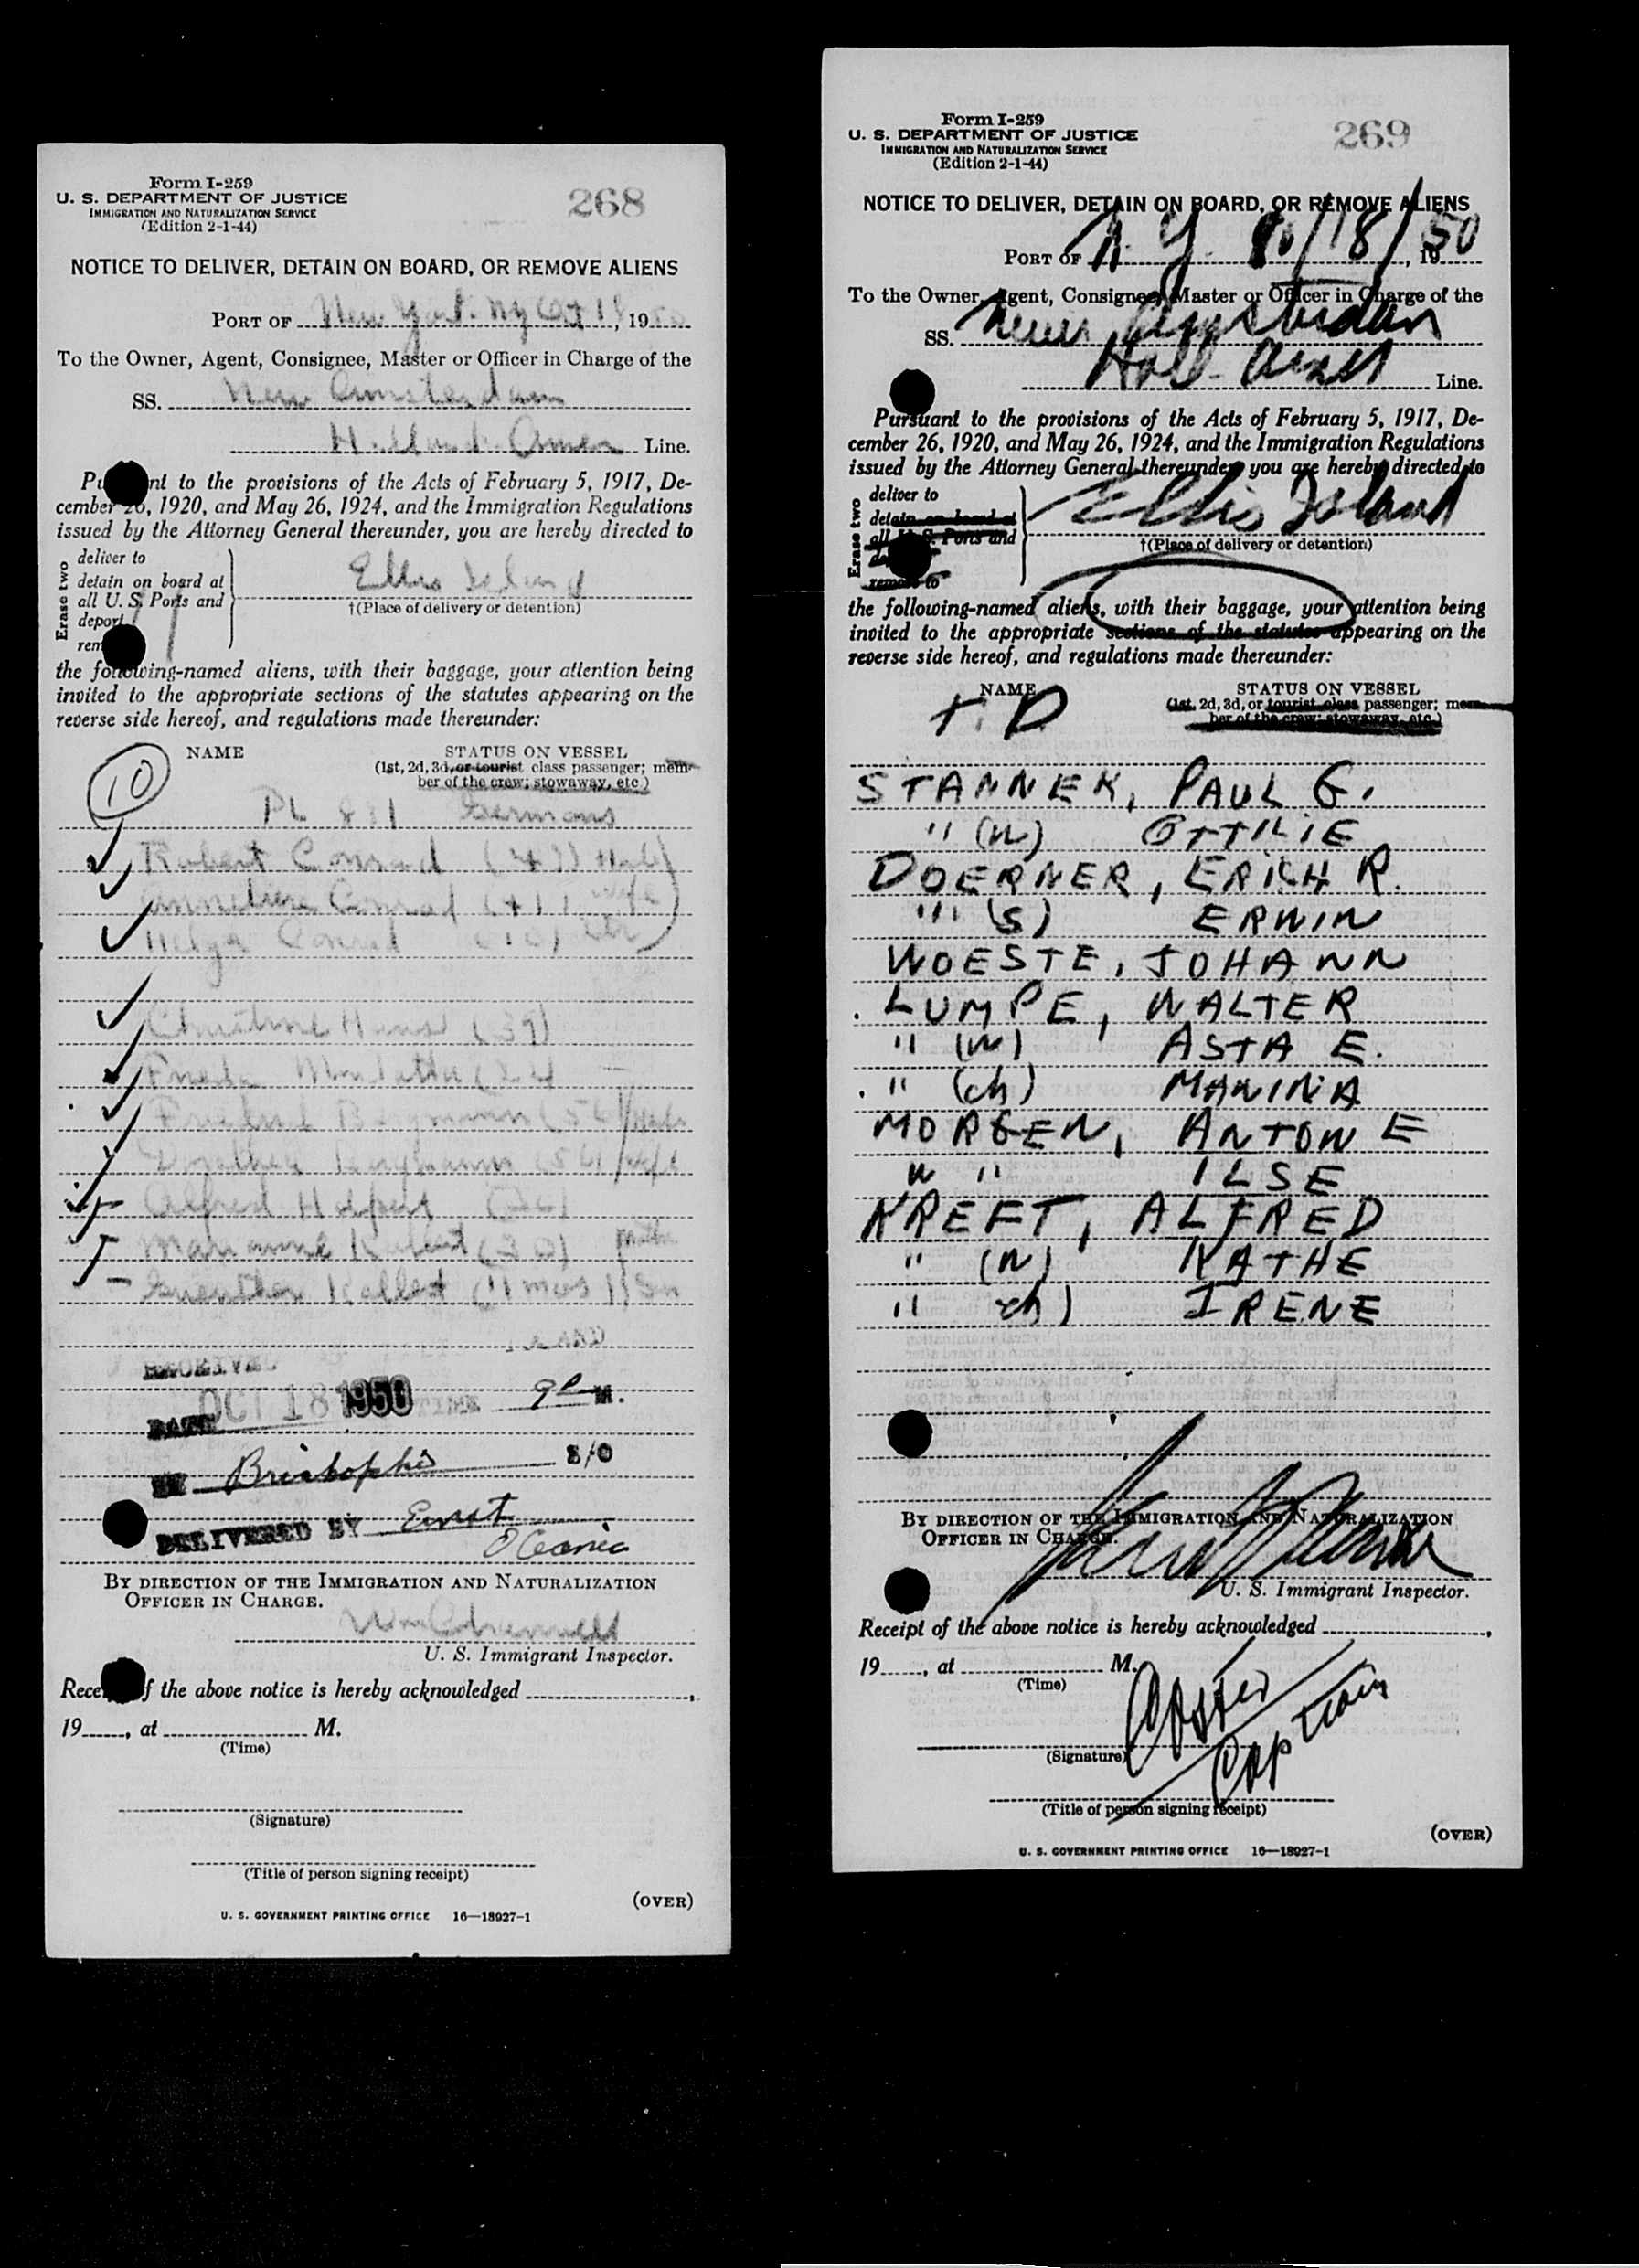 Form I-259
U. S. DEPARTMENT OF JUSTICE
IMMIGRATION AND NATURALIZATION SERVICE
(Edition 2-1-44)
268
NOTICE TO DELIVER, DETAIN ON BOARD, OR REMOVE ALIENS
PORT OF New York. Ny Oct 18, 1950
To the Owner, Agent, Consignee, Master or Officer in Charge of the
SS. New Amsterdam
Holland. Amer Line.
nt to the provisions of the Acts of February 5, 1917, De-
cember 26, 1920, and May 26, 1924, and the Immigration Regulations
issued by the Attorney General thereunder, you are hereby directed to
Erase two
deliver to
detain on board at
all U. S. Ports and
deport
rem
Ellis Island
†(Place of delivery or detention)
the following-named aliens, with their baggage, your attention being
invited to the appropriate sections of the statutes appearing on the
reverse side hereof, and regulations made thereunder:
10
NAME
STATUS ON VESSEL
(1st, 2d, 3d, or tourist class passenger; mem-
ber of the crew; stowaway, etc.)
PL 831 Germans
Robert Conrad
Conrad wife
Helga Conrad
(39)
Frieda
Bergmann (56
Bergmann (56) wife
Alfred
Marianne (30)
Guenther Kallert (11 mos) Son
OCT 18 1950 TIME 9 P M.
DATE
BY S/O
DELIVERED BY Ernst
Oceanic
BY DIRECTION OF THE IMMIGRATION AND NATURALIZATION
OFFICER IN CHARGE.
U. S. Immigrant Inspector.
Rece f the above notice is hereby acknowledged
19, at M.
(Time)
(Signature)
(Title of person signing receipt)
(OVER)
U. S. GOVERNMENT PRINTING OFFICE 16—18927-1
Form I-259
U. S. DEPARTMENT OF JUSTICE
IMMIGRATION AND NATURALIZATION SERVICE
(Edition 2-1-44)
269
NOTICE TO DELIVER, DETAIN ON BOARD, OR REMOVE ALIENS
PORT OF N. Y. 10/18/, 1950
To the Owner, Agent, Consignee, Master or Officer in Charge of the
SS. Nieuw Amsterdam
Holl- Amer Line.
Pursuant to the provisions of the Acts of February 5, 1917, De-
cember 26, 1920, and May 26, 1924, and the Immigration Regulations
issued by the Attorney General thereunder, you are hereby directed to
Erase two
deliver to
detain on board at
all U. S. Ports and
de
remove to
Ellis Island
†(Place of delivery or detention)
the following-named aliens, with their baggage, your attention being
invited to the appropriate sections of the statutes appearing on the
reverse side hereof, and regulations made thereunder:
NAME
STATUS ON VESSEL
(1st, 2d, 3d, or tourist class passenger; mem-
ber of the crew; stowaway, etc.)
T. D
STANNEK, PAUL G.
" (W) OTTILIE
DOERNER, ERICH R.
" (S) ERWIN
WOESTE, JOHANN
LUMPE, WALTER
" (W) ASTA E.
" (ch) MANINA
MORGEN, ANTON E
W " ILSE
KREFT, ALFRED
" (W) KATHE
" ch) IRENE
BY DIRECTION OF THE IMMIGRATION AND NATURALIZATION
OFFICER IN CHARGE.
U. S. Immigrant Inspector.
Receipt of the above notice is hereby acknowledged
19, at M.
(Time)
(Signature)
Captain
(Title of person signing receipt)
(OVER)
U. S. GOVERNMENT PRINTING OFFICE 16—18927-1